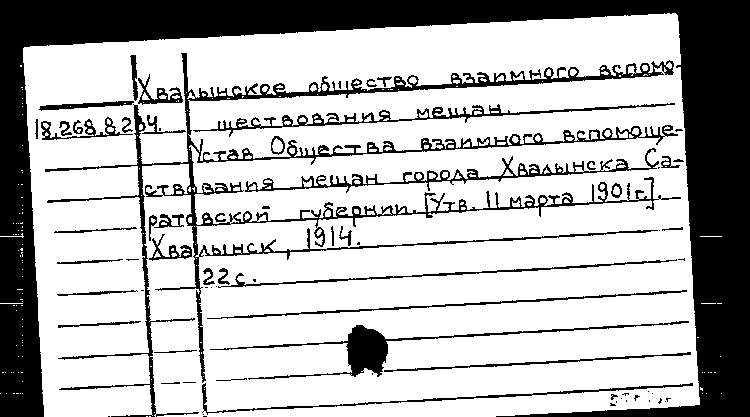 Хвалынское общество взаимного вспомо-
18.268.8.234. ществования мещан.
Устав Общества взаимного вспомоще-
ствования мещан города Хвалынска Са-
ратовской губернии. [Утв. 11 марта 1901г.].
Хвалынск, 1914.
22 с.